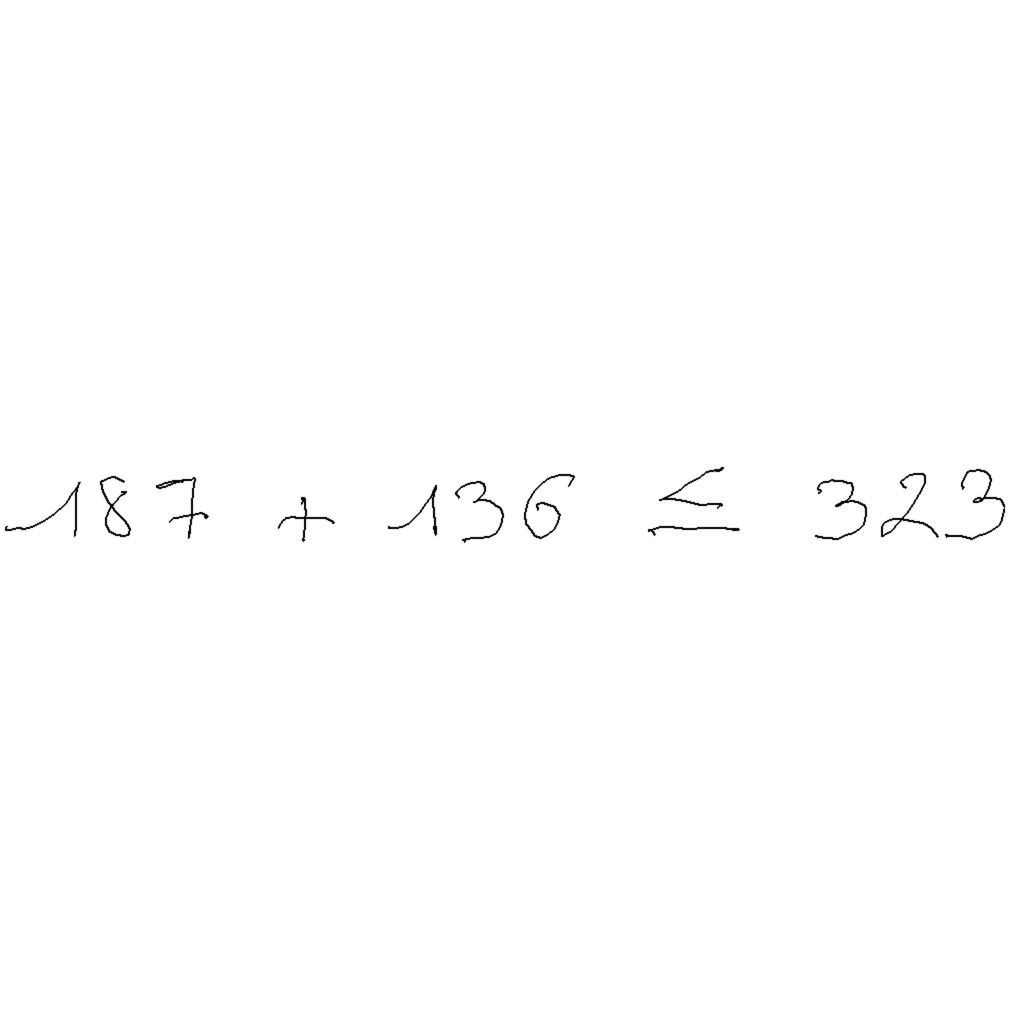 187 + 136 ≤ 323